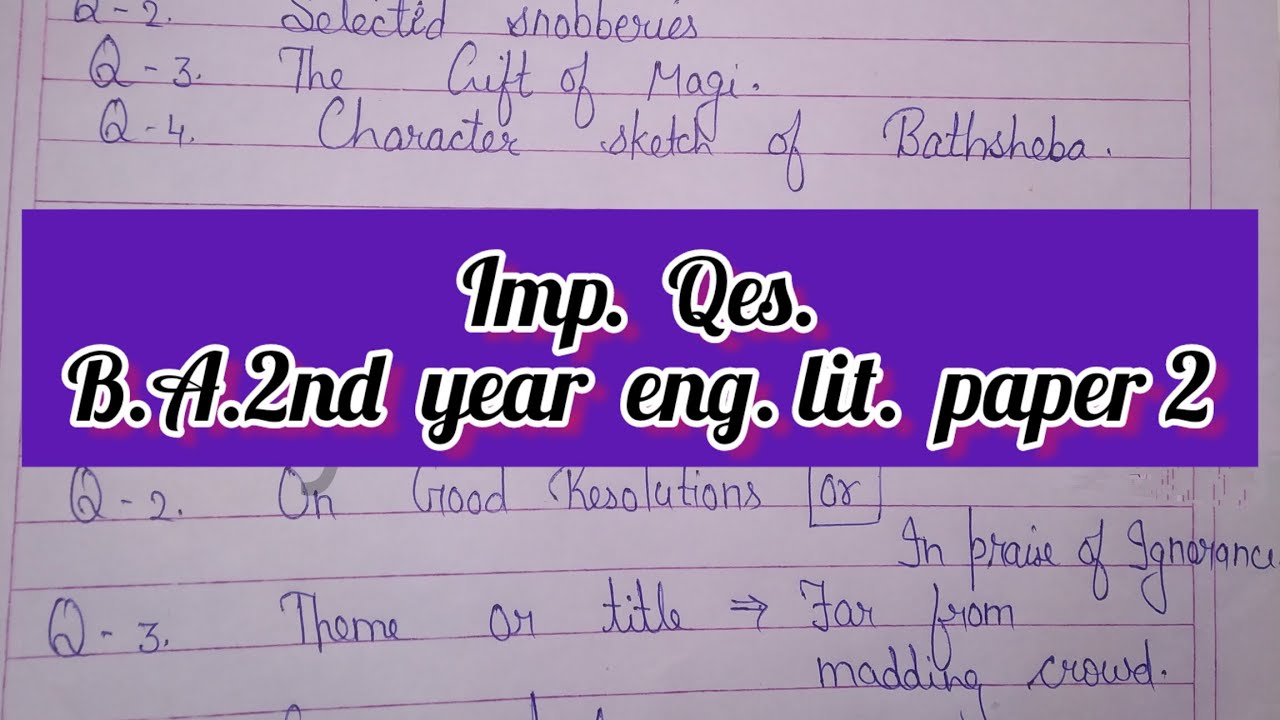 Q-2. Selected snobberies
Q-3. The Gift of Magi.
Q-4. Character sketch of Bathsheba.
Imp. Qes.
B.A.2nd year eng. lit. paper 2
Q-2. On Good Resolutions or
In praise of Ignorance
Q-3. Theme or title ⇒ Far from
madding crowd.